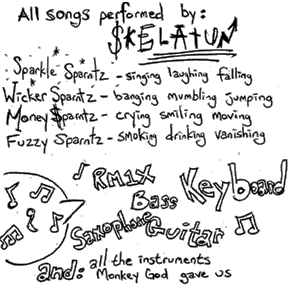 All songs performed by:
$KELATUN
Sparkle Sparntz - singing laughing falling
Wicker Sparntz - banging mumbling jumping
Money $parntz - crying smiling moving
Fuzzy Sparntz - smoking drinking vanishing
RM1X Keyboard
Bass
Saxophone Guitar
and: all the instruments
Monkey God gave us